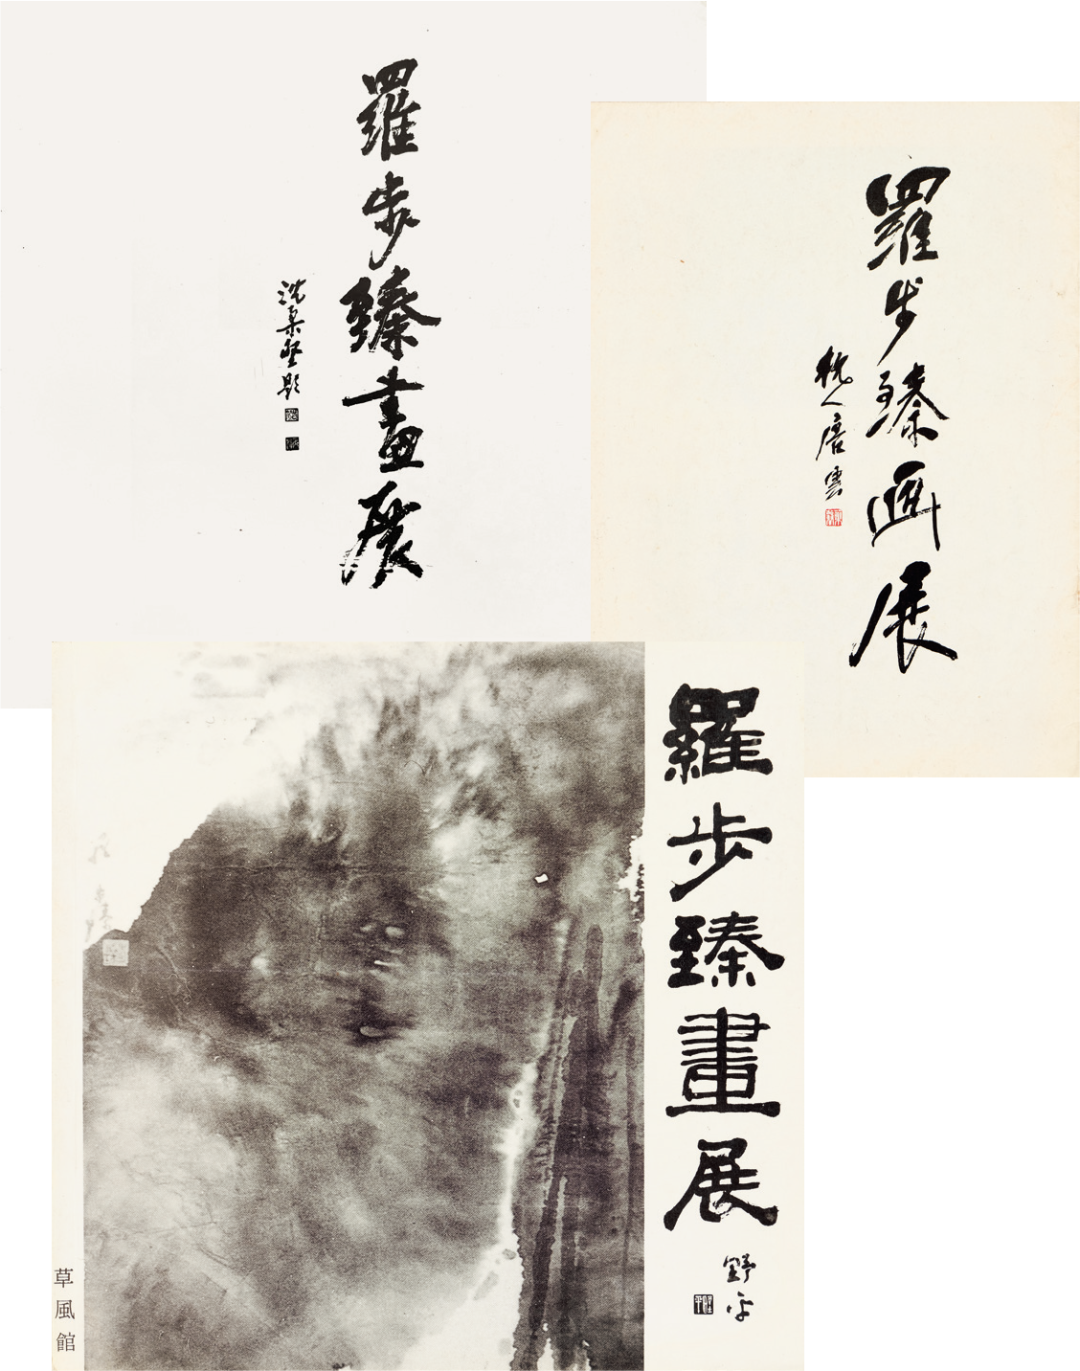 羅步臻畫展
沈柔堅題
羅步臻画展
杭人唐雲
羅步臻畫展
野平
草風館